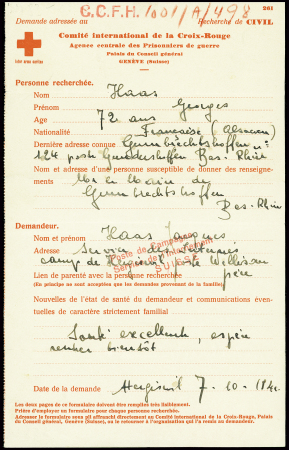 C.C.F.H. 1001/A/498
261
Demande adressée au Recherche de CIVIL
Comité international de la Croix-Rouge
Agence centrale des Prisonniers de guerre
Palais du Conseil général
GENÈVE (Suisse)
Personne recherchée.
Nom Haas
Prénom Georges
Age 72 ans
Nationalité Française (Alsacien)
Dernière adresse connue Gumbrechtshoffen
124 poste Gundershoffen Bas-Rhin
Nom et adresse d'une personne susceptible de donner des renseigne-
ments Mr le Maire de
Gumbrechtshoffen
Bas-Rhin
Demandeur.
Nom et prénom Haas Jacques
Adresse Service des Internés
camp de Hergiswil poste Willisau
Poste de Campagne
SUISSE
Lien de parenté avec la personne recherchée père
(En principe on sont acceptées que les demandes provenant de la famille)
Nouvelles de l'état de santé du demandeur et communications éven-
tuelles de caractère strictement familial
Santé excellente, espère
rentrer bientôt
Date de la demande Hergiswil 7-10-194
Les deux pages de ce formulaire doivent être remplies très lisiblement.
Prière d'employer un formulaire pour chaque personne recherchée.
Adresser le formulaire sous pli affranchi directement au Comité international de la Croix-Rouge, Palais
du Conseil général, Genève (Suisse), ou le retourner à l'organisation qui l'a remis au demandeur.